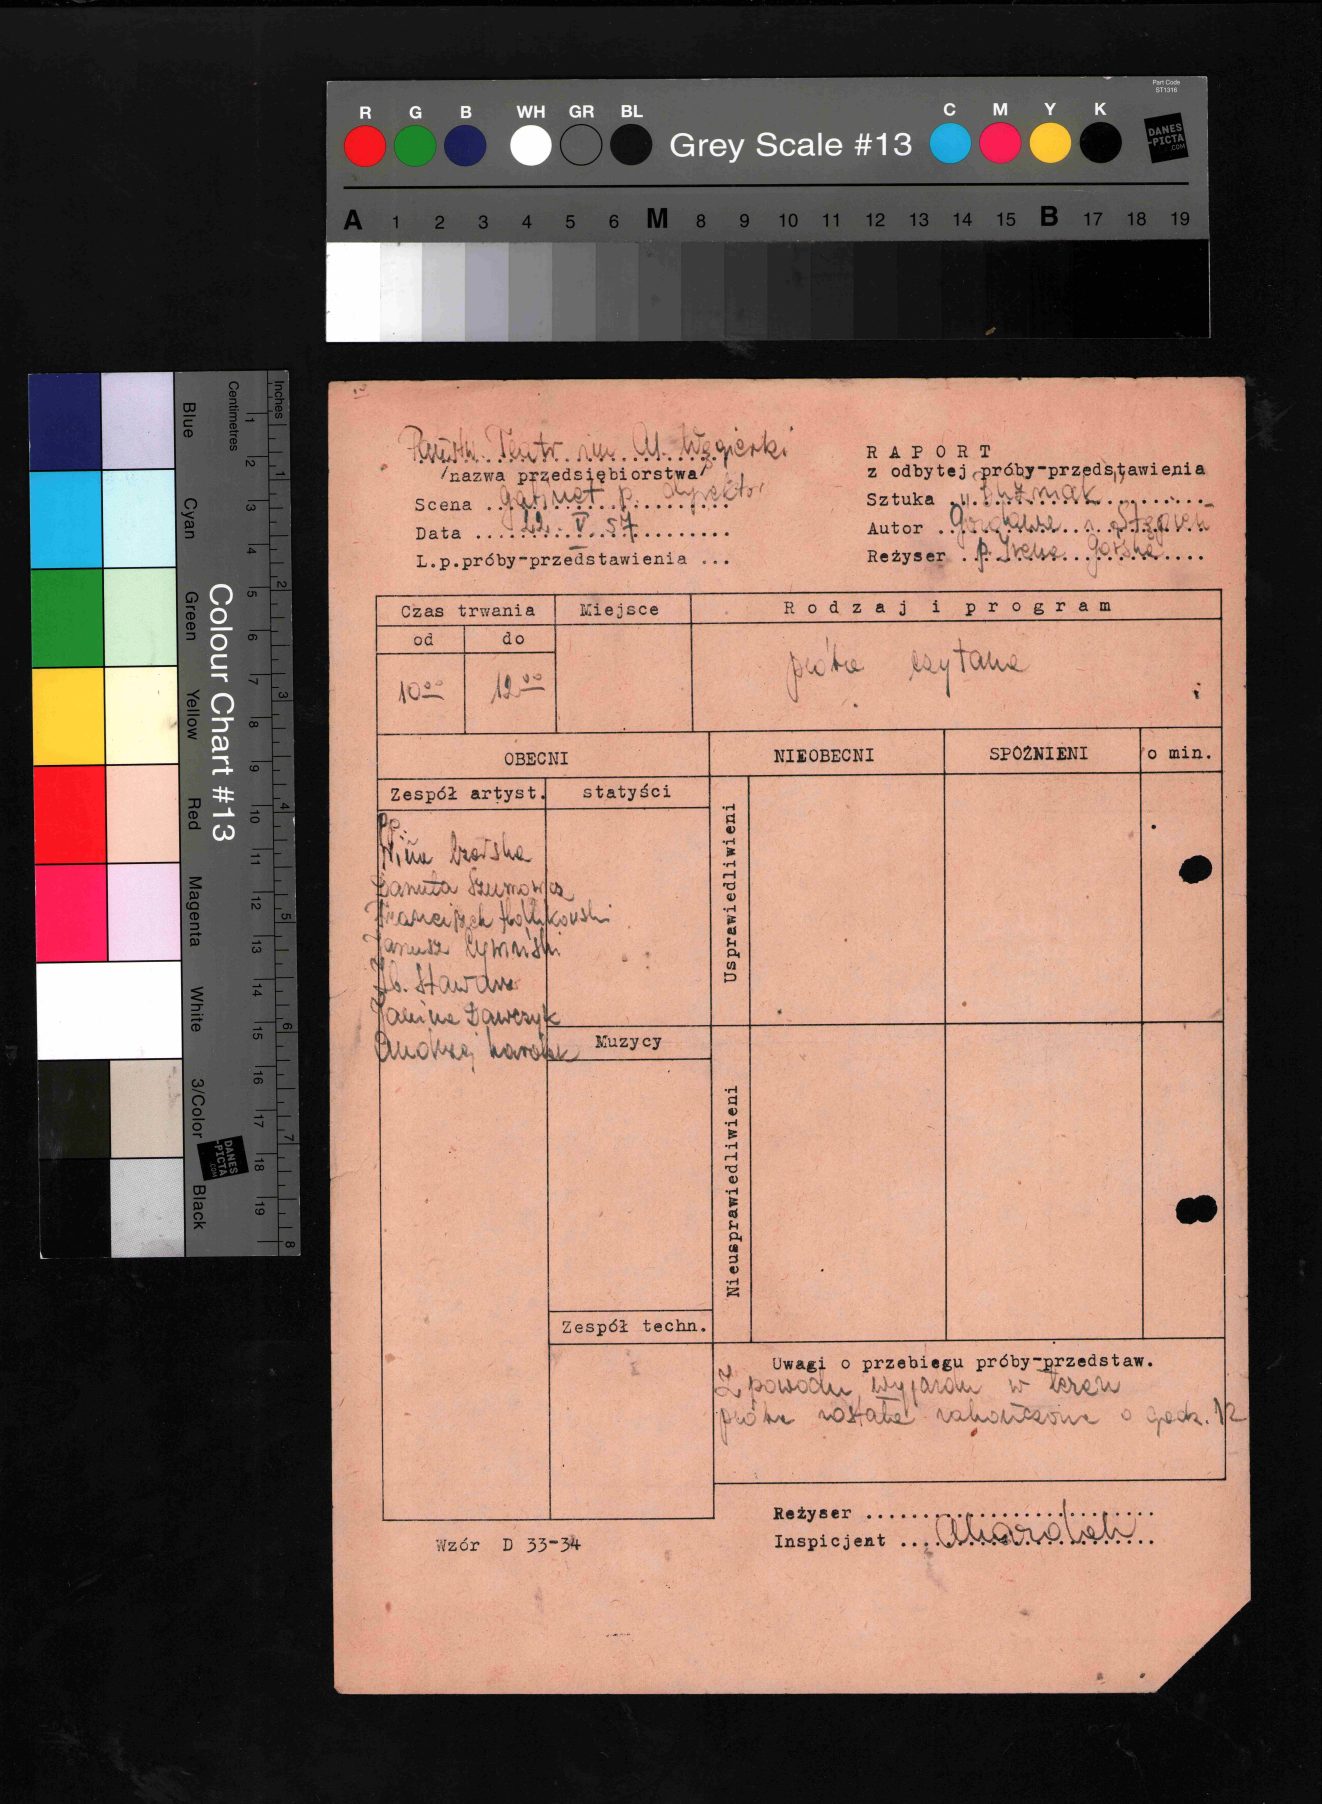 Part Code
ST1316
R G B WH GR BL Grey Scale #13 C M Y K
DANES
-PICTA
.COM
A 1 2 3 4 5 6 M 8 9 10 11 12 13 14 15 B 17 18 19
Colour Chart #13
Blue
Cyan
Green
Yellow
Red
Magenta
White
3/Color
Black
Centimetres
1 2 3 4 5 6 7 8 9 10 11 12 13 14 15 16 17 18 19
Inches
1 2 3 4 5 6 7 8
DANES
-PICTA
.COM
Teatr im Al. Węgierki
/nazwa przedsiębiorstwa/
Scena gabinet p. dyrektor
Data 22. V. 57
L.p.próby-przedstawienia ...
RAPORT
z odbytej próby-przedstawienia
Sztuka
Autor Gozdawa i Stępień
Reżyser p. Irena Górska
Czas trwania
od do
Miejsce
Rodzaj i program
10 00 12 00
próba czytana
OBECNI
NIEOBECNI
SPÓŹNIENI
o min.
Zespół artyst.
statyści
Usprawiedliwieni
pp.
Nina
Danuta Szumowicz
Franciszek
Janusz
Zb.
Janina Ławczyk
Andrzej Karolak
Muzycy
Nieusprawiedliwieni
Zespół techn.
Uwagi o przebiegu próby-przedstaw.
Z powodu wyjazdu w teren
próba została zakończona o godz. 12
Reżyser
Inspicjent AKarolak
Wzór D 33-34